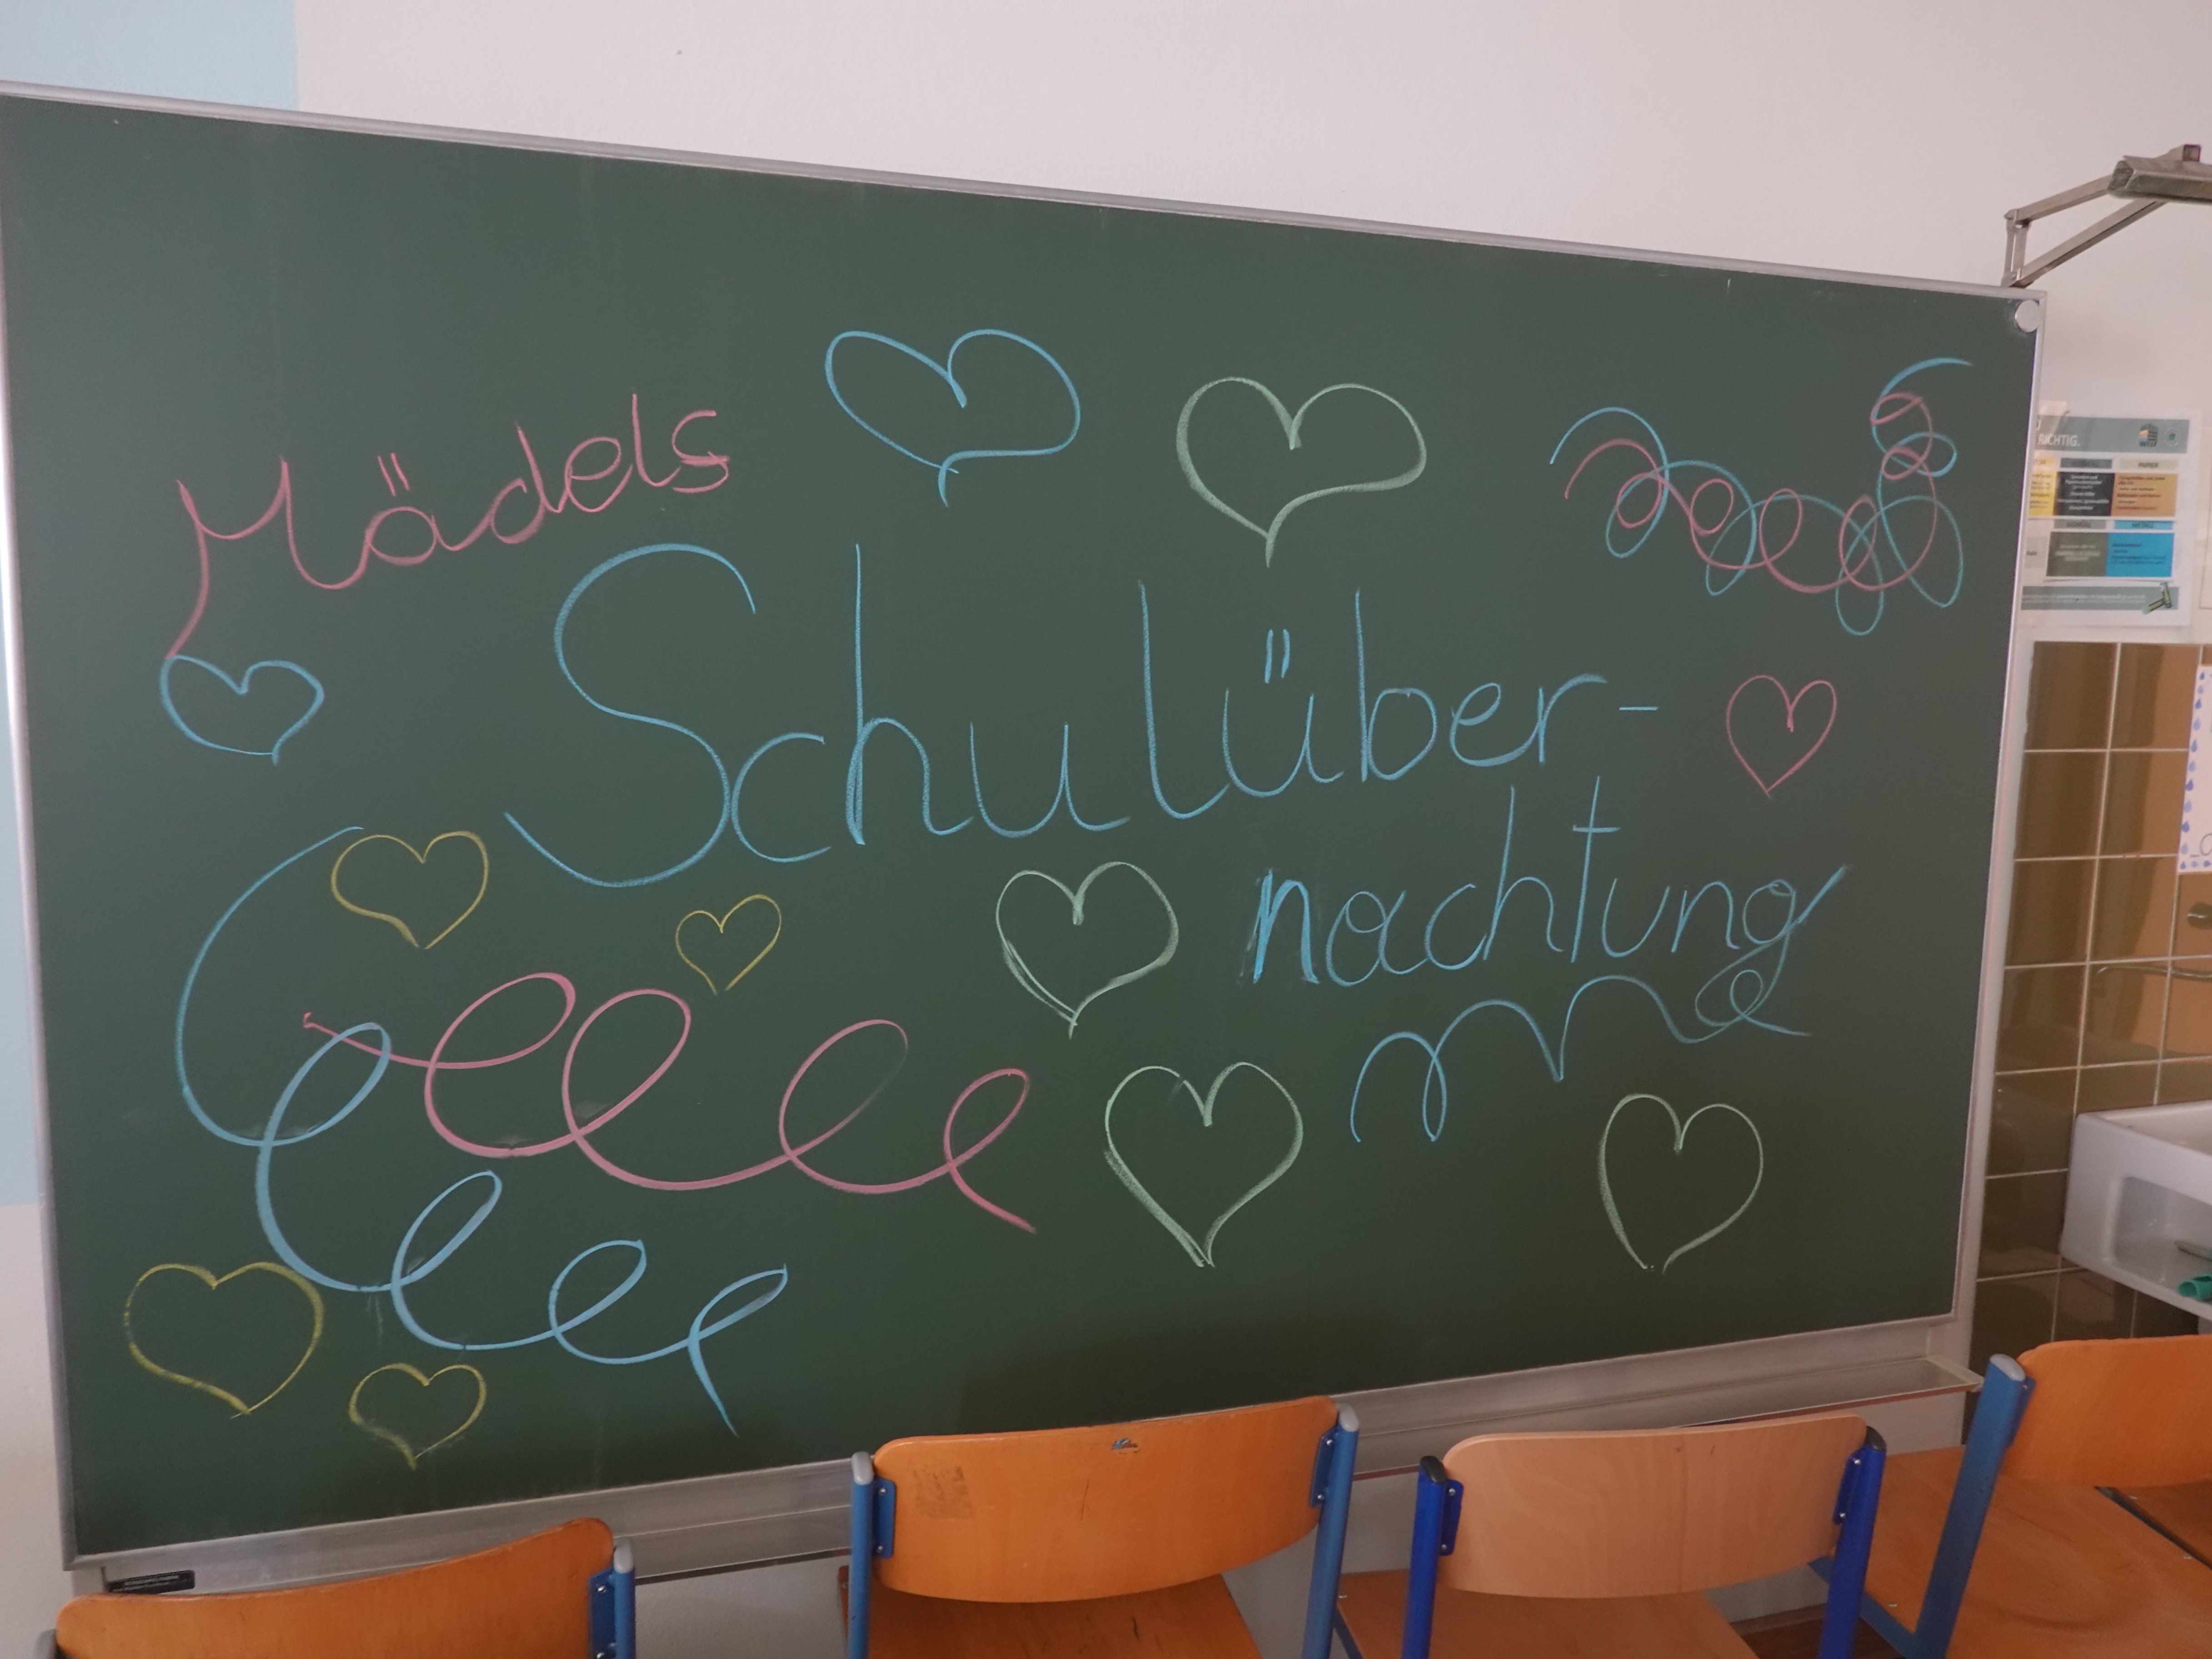 Mädels
Schulüber-
nachtung
RICHTIG.
PAPIER